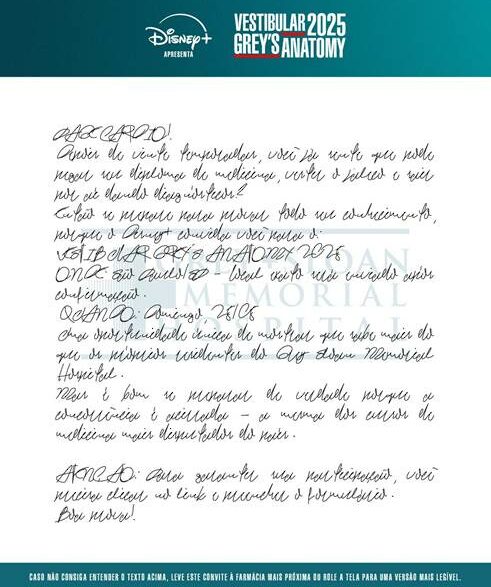 Disney+
APRESENTA
VESTIBULAR 2025
GREY'S ANATOMY
Depois de vinte temporadas, você já sente que pode
pegar seu diploma de medicina, vestir o jaleco e sair
por aí dando diagnósticos?
Então se prepare para provar todo seu conhecimento,
porque o Disney+ convida você para o:
VESTIBULAR GREY'S ANATOMY 2025
ONDE: São Paulo/SP – local exato será enviado após
confirmação.
QUANDO: Domingo,
Uma oportunidade única de mostrar que sabe mais do
que os próprios residentes do Grey Sloan Memorial
Hospital.
Mas é bom se preparar de verdade porque a
concorrência é acirrada – a mesma dos cursos de
medicina mais disputados do país.
ATENÇÃO: Para garantir sua participação, você
precisa clicar no link e preencher o formulário.
Boa prova!
SLOAN
MEMORIAL
HOSPITAL
CASO NÃO CONSIGA ENTENDER O TEXTO ACIMA, LEVE ESTE CONVITE À FARMÁCIA MAIS PRÓXIMA OU ROLE A TELA PARA UMA VERSÃO MAIS LEGÍVEL.